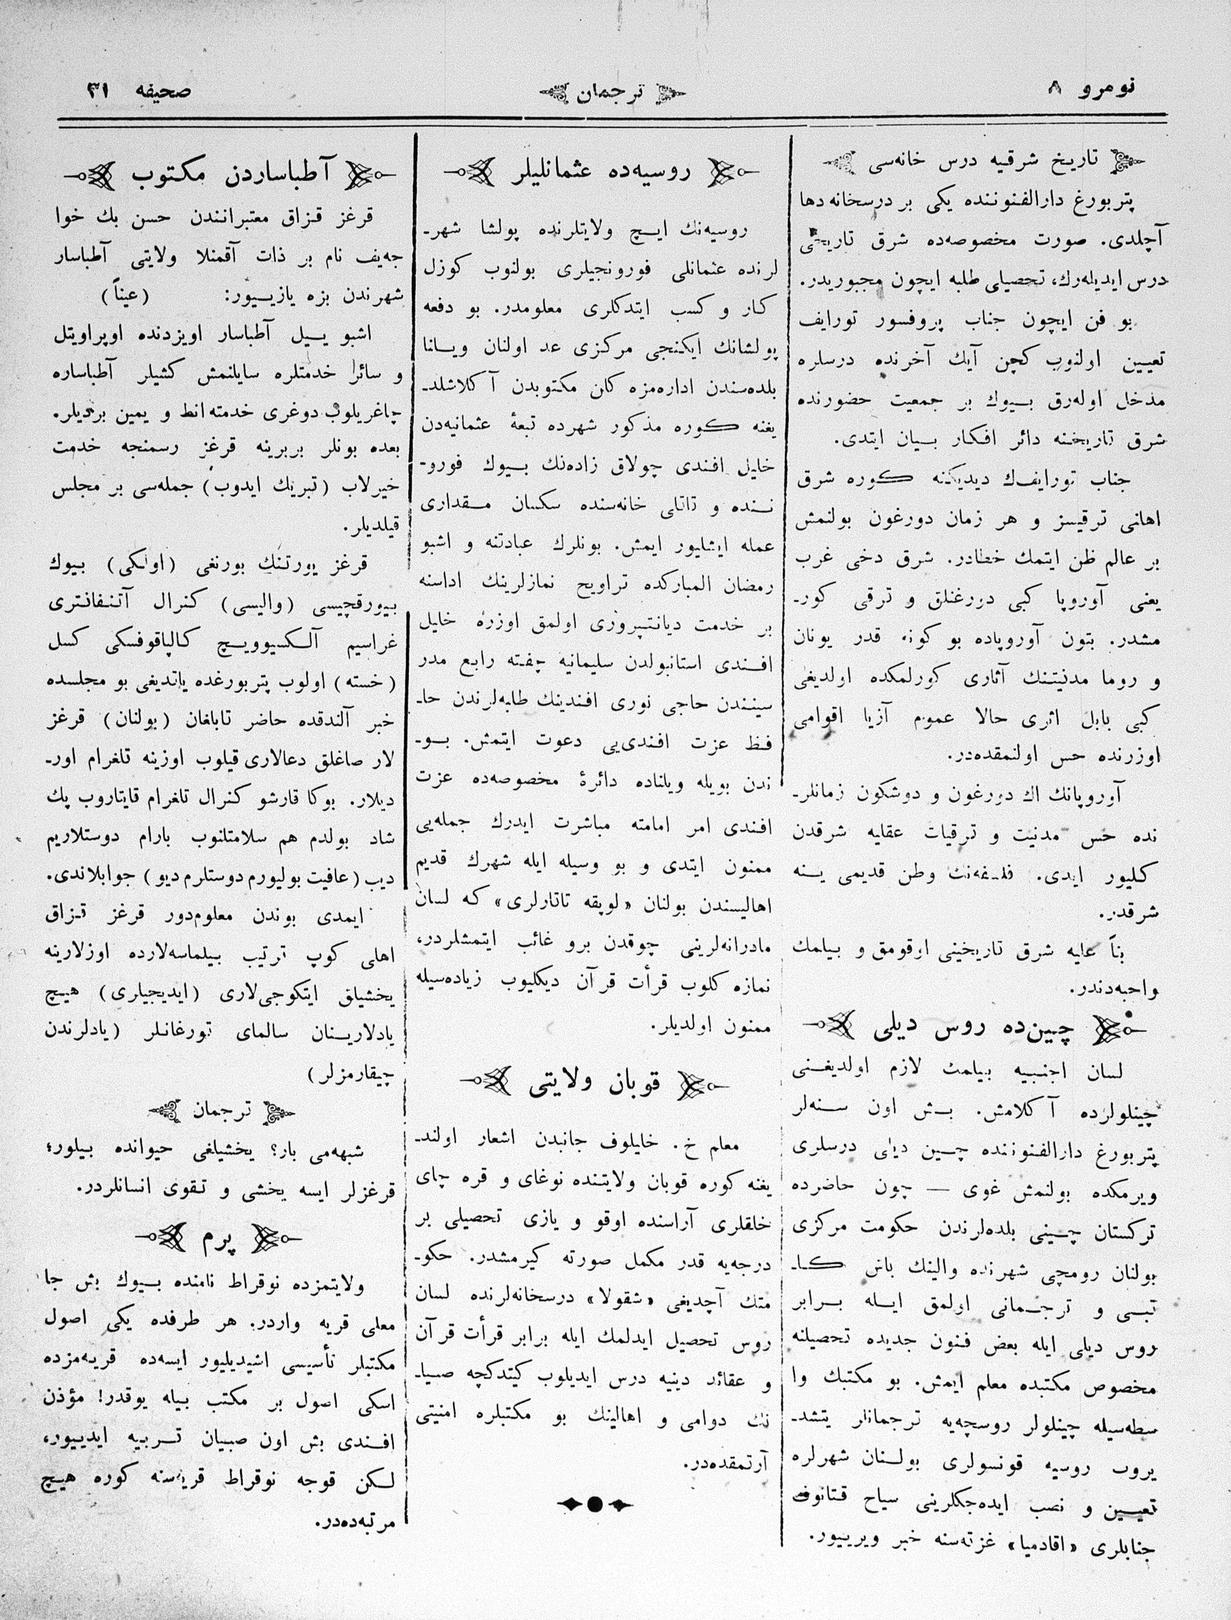 نومرو ٨
ترجمان
صحيفه ٣١
تاريخ شرقيه درس خانه‌سی
پتربورغ دارالفنوننده يكی بر درسخانه دها
آچلدی. صورت مخصوصه‌ده شرق تاريخی
درس ايديله‌رك، تحصيلی طلبه ايچون مجبوريدر.
بو فن ايچون جناب پروفسور تورايف
تعيين اولنوب كچن آيك آخرنده درسلره
مدخل اوله‌رق بيوك بر جمعيت حضورنده
شرق تاريخينه دائر افكار بيان ايتدی.
جناب تورايفك ديديكنه كوره شرق
اهانی ترقيسز و هر زمان دورغون بولنمش
بر عالم ظن ايتمك خطادر. شرق دخی غرب
يعنی آوروپا كبی دررغنلق و ترقی كور-
مشدر. بتون آوروپاده بو كونه قدر يونان
و روما مدنيتنك آثاری كورلمكده اولديغی
كبی بابل اثری حالا عموم آزيا اقوامی
اوزرنده حس اولنمقده‌در.
آوروپانك اك دورغون و دوشكون زمانلر-
نده حس مدنيت و ترقيات عقليه شرقدن
كليور ايدی. فلسفه‌نك وطن قديمی ينه
شرقدر.
بناً عليه شرق تاريخينی اوقومق و بيلمك
واجبه‌دندر.
چين‌ده روس ديلی
لسان اجنبيه بيلمك لازم اولديغنی
چينلولرده آكلامش. بش اون سنه‌لر
پتربورغ دارالفنوننده چين ديلی درسلری
ويرمكده بولنمش غوی — چون حاضرده
تركستان چينی بلده‌لرندن حكومت مركزی
بولنان رومچی شهرنده والينك باش كا-
تبی و ترجمانی اولمق ايله برابر
روس ديلی ايله بعض فنون جديده تحصيلنه
مخصوص مكتبده معلم ايمش. بو مكتبك وا
سطه‌سيله چينلولر روسچه‌يه ترجمانلر يتشد-
يروب روسيه قونسولری بولنان شهرلره
تعيين و نصب ايده‌جكلرينی سياح قتانوف
جنابلری «اقادميا» غزته‌سنه خبر ويرييور.
روسيه‌ده عثمانليلر
روسيه‌نك ايچ ولايتلرنده پولشا شهر-
لرنده عثمانلی فورونجيلری بولنوب كوزل
كار و كسب ايتدكلری معلومدر. بو دفعه
پولشانك ايكنجی مركزی عد اولنان ويلنا
بلده‌سندن اداره‌مزه كلن مكتوبدن آكلاشلد-
يغنه كوره مذكور شهرده تبعهٔ عثمانيه‌دن
خليل افندی چولاق زاده‌نك بيوك فورو-
ننده و تاتلی خانه‌سنده سكسان مقداری
عمله ايشليور ايمش. بونلرك عبادتنه و اشبو
رمضان المباركده تراويح نمازلرينك اداسنه
بر خدمت ديانتپروری اولمق اوزره خليل
افندی استانبولدن سليمانيه چفته رابع مدر
سيندن حاجی نوری افندينك طلبه‌لرندن حا-
فظ عزت افندی‌يی دعوت ايتمش. بو-
ندن بويله ويلناده دائرهٔ مخصوصه‌ده عزت
افندی امر امامته مباشرت ايدرك جمله‌يی
ممنون ايتدی و بو وسيله ايله شهرك قديم
اهاليسندن بولنان «لوپقه تاتارلری» كه لسان
مادرانه‌لرينی چوقدن برو غائب ايتمشلردر،
نمازه كلوب قرأت قرآن ديكليوب زياده‌سيله
ممنون اولديلر.
قوبان ولايتی
معلم خ. خليلوف جانبدن اشعار اولند-
يغنه كوره قوبان ولايتنده نوغای و قره چای
خلقلری آراسنده اوقو و يازی تحصيلی بر
درجه‌يه قدر مكمل صورته كيرمشدر. حكو-
متك آچديغی «شقولا» درسخانه‌لرنده لسان
روس تحصيل ايدلمك ايله برابر قرأت قرآن
و عقائد دينيه درس ايديلوب كيتدكچه صبيا-
نك دوامی و اهالينك بو مكتبلره امنيتی
آرتمقده‌در.
آطباساردن مكتوب
قرغز قزاق معتبرانندن حسن بك خوا
جه‌يف نام بر ذات آقمنلا ولايتی آطباسار
شهرندن بزه يازييور: (عيناً)
اشبو ييل آطباسار اويزدنده اوپراويتل
و سائرا خدمتلره سايلنمش كشيلر آطباساره
چاغريلوب دوغری خدمته انط و يمين برديلر.
بعده بونلر بربرينه قرغز رسمنجه خدمت
خيرلاب (تبريك ايدوب) جمله‌سی بر مجلس
قيلديلر.
قرغز يورتنك بورنغی (اولكی) بيوك
بيورقچيسی (واليسی) كنرال آتنفانتری
غراسيم آلكسيوويچ كالپاقوفسكی كسل
(خسته) اولوب پتربورغده ياتديغی بو مجلسده
خبر آلندقده حاضر تابلغان (بولنان) قرغز
لار صاغلق دعالاری قيلوب اوزينه تلغرام اور-
ديلار. بوكا قارشو كنرال تلغرام قايتاروب پك
شاد بولدم هم سلامتلنوب بارام دوستلاريم
ديب (عافيت بوليورم دوستلرم ديو) جوابلاندی.
ايمدی بوندن معلوم‌دور قرغز قزاق
اهلی كوپ ترتيب بيلماسه‌لارده اوزلارينه
يخشيلق ايتكوجی‌لاری (ايديجيلری) هيچ
يادلارينان سالمای تورغانلر (يادلرندن
چيقارمزلر)
ترجمان
شبهه‌می بار؟ يخشيلغی حيوانده بيلور؛
قرغزلر ايسه يخشی و تقوی انسانلردر.
پرم
ولايتمزده نوقراط نامنده بيوك بش جا
معلی قريه واردر. هر طرفده يكی اصول
مكتبلر تأسيسی اشيديليور ايسه‌ده قريه‌مزده
اسكی اصول بر مكتب بيله يوقدر! مؤذن
افندی بش اون صبيان تربيه ايدييور،
لكن قوجه نوقراط قريه‌سنه كوره هيچ
مرتبه‌ده‌در.